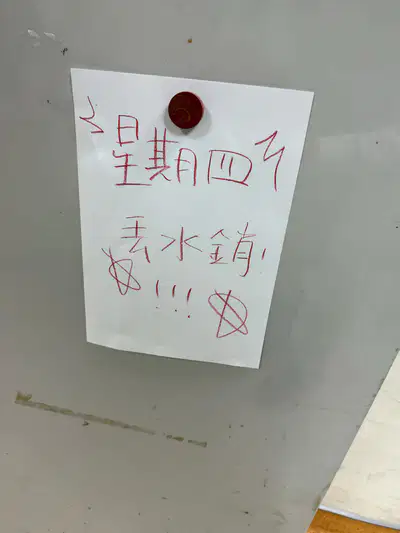 星期四
丟水銷
!!!